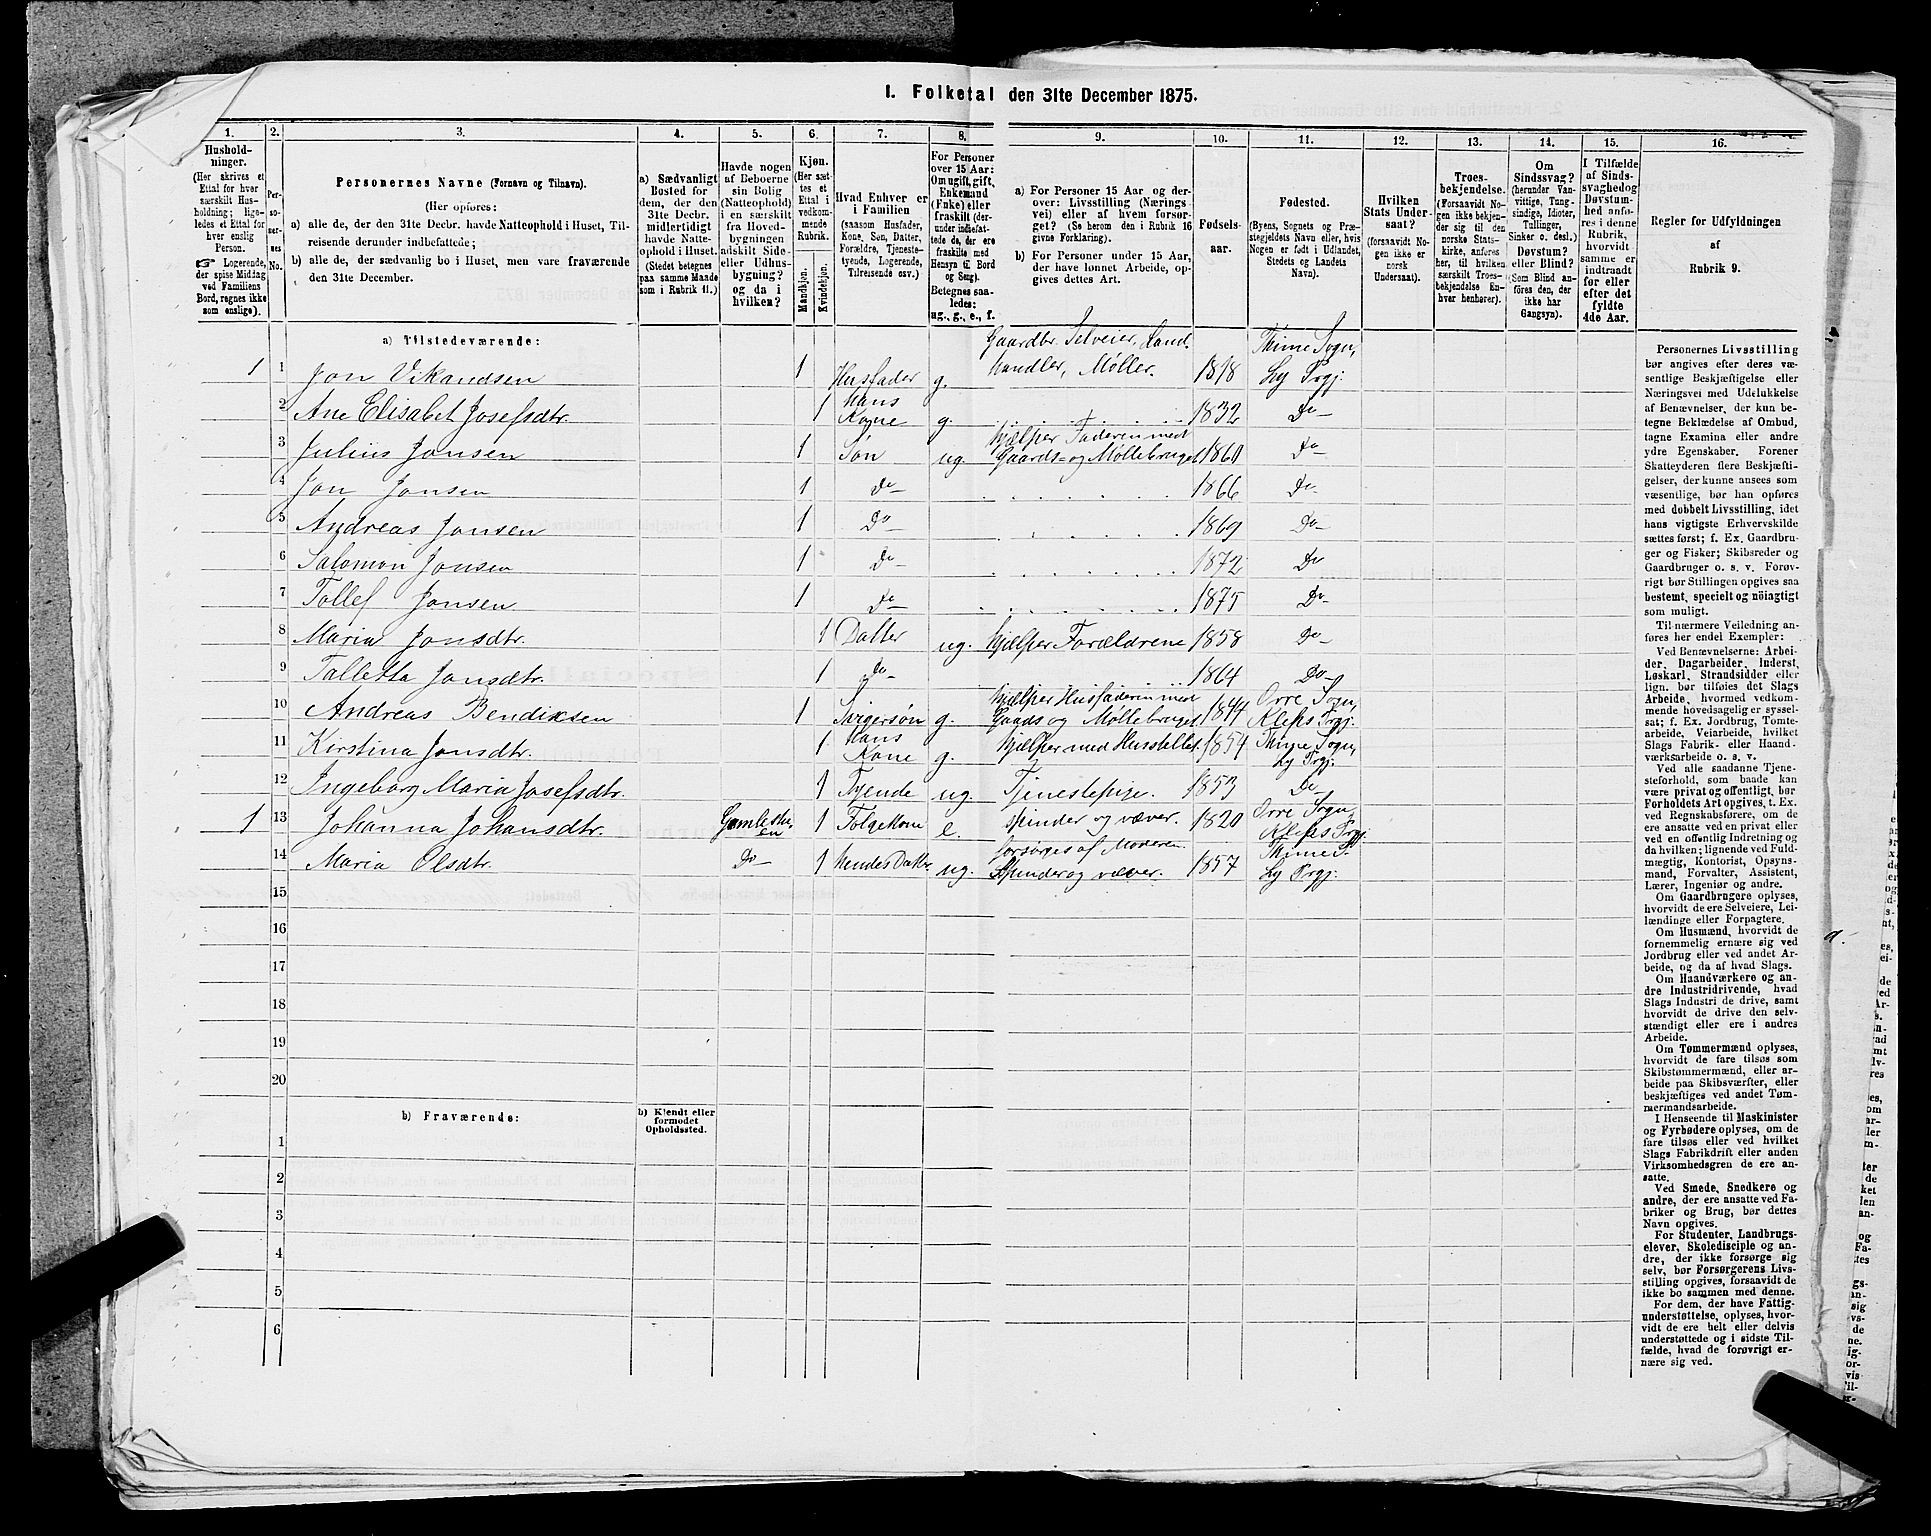 1. Folketal den 31te December 1875.
1. 2. 3. 4. 5. 6. 7. 8. 9. 10. 11. 12. 13. 14. 15. 16.
Hushold-
ninger.
(Her skrives et
Ettal for hver
særskilt Hus-
holdning; lige-
ledes et Ettal for
hver enslig
Person.
☞ Logerende,
der spise Middag
ved Familiens
Bord, regnes ikke
som enslige).
Per-
so-
ner-
nes
No.
Personernes Navne (Fornavn og Tilnavn).
(Her opføres:
a) alle de, der den 31te Decbr. havde Natteophold i Huset, Til-
reisende derunder indbefattede;
b) alle de, der sædvanlig bo i Huset, men vare fraværende
den 31te December.
a) Sædvanligt
Bosted for
dem, der den
31te Decbr.
midlertidigt
havde Natte-
ophold i Huset.
(Stedet betegnes
paa samme Maade
som i Rubrik 11.)
Havde nogen
af Beboerne
sin Bolig
(Natteophold)
i en særskilt
fra Hoved-
bygningen
adskilt Side-
eller Udhus-
bygning?
og da i
hvilken?
Kjøn.
(Her sæt-
tes et
Ettal i
vedkom-
mende
Rubrik.
Mandkjøn.
Kvindekjøn.
Hvad Enhver er
i Familien
(saasom Husfader,
Kone, Søn, Datter,
Forældre, Tjeneste-
tyende, Logerende,
Tilreisende osv.)
For Personer
over 15 Aar:
Om ugift, gift,
Enkemand
(Enke) eller
fraskilt (der-
under indbefat-
tede de, der ere
fraskilte med
Hensyn til Bord
og Seng).
Betegnes saa-
ledes:
ug., g., e., f.
a) For Personer 15 Aar og der-
over: Livsstilling (Nærings
vei) eller af hvem forsør-
get? (Se herom den i Rubrik 16
givne Forklaring).
b) For Personer under 15 Aar,
der have lønnet Arbeide, op-
gives dettes Art.
Fødsels-
aar.
Fødested.
(Byens, Sognets og Præ-
stegjeldets Navn eller, hvis
Nogen er født i Udlandet,
Stedets og Landets
Navn).
Hvilken
Stats Under-
saat?
(forsaavidt No-
gen ikke er
norsk
Undersaat).
Troes-
bekjendelse.
(Forsaavidt No-
gen ikke bekjen-
der sig til den
norske Stats-
kirke, anføres
her, til hvilken
særskilt Troes-
bekjendelse En-
hver henhører).
Om
Sindssvag?
(herunder Van-
vittige, Tung-
sindige, Idioter,
Tullinger,
Sinker o. desl.)
Døvstum?
eller Blind?
(Som Blind an-
føres den, der
ikke har
Gangsyn).
I Tilfælde
af Sinds-
svaghed og
Døvstum-
hed anfø-
res i denne
Rubrik,
hvorvidt
samme er
indtraadt
før eller
efter det
fyldte
4de Aar.
Regler for Udfyldningen
af
Rubrik 9.
a) Tilstedeværende:
1 1 Jon Vikandsen 1 Husfader g. Gaardbr. Selveier, Land handler, Møller. 1818 Thime Sogn, Ly Prgj.
2 Ane Elisabet Josefsdtr. 1 Hans Kone g. 1832 Do
3 Julius Jonsen 1 Søn ug. hjælper Faderen med Gaards- og Møllebruget 1860 Do
4 Jon Jonsen 1 Do 1866 Do
5 Andreas Jonsen 1 Do 1869 Do
6 Salomon Jonsen 1 Do 1872 Do
7 Tollef Jonsen 1 Do 1875 Do
8 Maria Jonsdtr. 1 Datter ug. hjælper Forældrene 1858 Do
9 Talletta Jonsdtr. 1 Do 1864 Do
10 Andreas Bendiksen 1 Svigersøn g. hjælper Husfaderen med Gaards og Møllebruget 1844 Orre Sogn, Kleps Prgj.
11 Kirstina Jonsdtr. 1 Hans Kone g. hjælper med Husstellet. 1854 Thime Sogn, Ly Prgj.
12 Ingeborg Maria Josefsdtr. 1 Tyende ug. Tjenestepige. 1853 Do
1 13 Johanna Johansdtr. 1 Folgekone e. spinder og væver. 1820 Orre Sogn, Kleps Prgj.
14 Maria Olsdtr. Do 1 hendes Datter ug. forsørges af Moderen Spinder og væver. 1857 Thime S. Ly Prgj.
15
16
17
18
19
20
b) Fraværende:
b) Kjendt eller
formodet
Opholdssted.
1
2
3
4
5
6
Personernes Livsstilling
bør angives efter deres væ-
sentlige Beskjæftigelse eller
Næringsvei med Udelukkelse
af Benævnelser, der kun be-
tegne Beklædelse af Ombud,
tagne Examina eller andre
ydre Egenskaber. Forener
Skatteyderen flere Beskjæfti-
gelser, der kunne ansees som
væsentlige, bør han opføres
med dobbelt Livsstilling, idet
hans vigtigste Erhvervskilde
sættes først; f. Ex. Gaardbru-
ger og Fisker; Skibsreder og
Gaardbruger o. s. v. Forøv-
rigt bør Stillingen opgives saa
bestemt, specielt og nöiagtigt
som muligt.
Til nærmere Veiledning an-
føres her endel Exempler:
Ved Benævnelserne: Arbei-
der, Dagarbeider, Inderst,
Løskarl, Strandsidder eller
lign. bør tilføies det Slags
Arbeide, hvormed vedkom-
mende hovedsagelig er syssel-
sat; f. Ex. Jordbrug, Tomte-
arbeide, Veiarbeide, hvilket
Slags Fabrik- eller Haand-
værksarbeide o. s. v.
Ved alle saadanne Tjene-
steforhold, som baade kan
være privat og offentligt, bør
Forholdets Art opgives, t. Ex.
ved Regnskabsførere, om de
ere ansatte ved en privat eller
ved en offentlig Indretning og
da hvilken; lignende ved Fuld-
mægtig, Kontorist, Opsyns-
mand, Forvalter, Assistent,
Lærer, Ingeniør og andre.
Om Gaardbrugere oplyses,
hvorvidt de ere Selveiere, Lei-
lændinge eller Forpagtere.
Om Husmænd, hvorvidt de
fornemmelig ernære sig ved
Jordbrug eller ved andet Ar-
beide, og da af hvad Slags.
Om Haandværkere og an-
dre Industridrivende, hvad
Slags Industri de drive, samt
hvorvidt de drive den selv-
stændigt eller ere i andres
Arbeide.
Om Tømmermænd oplyses,
hvorvidt de fare tilsøs som
Skibstømmermænd, eller ar-
beide paa Skibsværfter, eller
beskjæftiges ved andet Tøm-
mermandsarbeide.
I Henseende til Maskinister
og Fyrbødere oplyses, om de
fare tilsøs eller ved hvilket
Slags Fabrikdrift eller anden
Virksomhedsgren de ere an-
satte.
Ved Smede, Snedkere og
andre, der ere ansatte ved Fa-
briker og Brug, bør dettes
Navn opgives.
For Studenter, Landbrugs-
elever, Skoledisciple og an-
dre, der ikke forsørge sig
selv, bør Forsørgerens Livs-
stilling opgives, forsaavidt de
ikke bo sammen med denne.
For dem, der have Fattig-
understøttelse, oplyses, hvor-
vidt de ere helt eller delvis
understøttede og i sidste Til-
fælde, hvad de forøvrigt er-
nære sig ved.